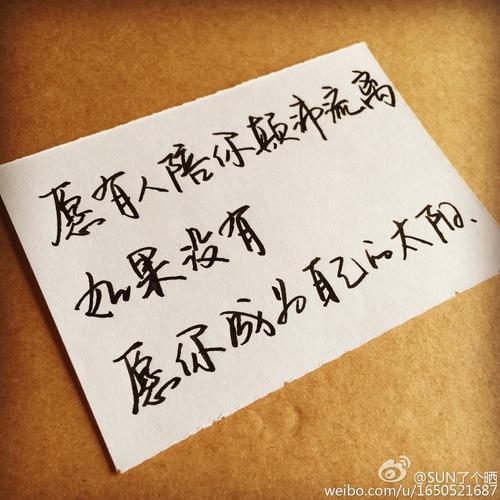 愿有人陪你颠沛流离
如果没有
愿你成为自己的太阳.
@SUN了个晒
weibo.com/u/1650521687